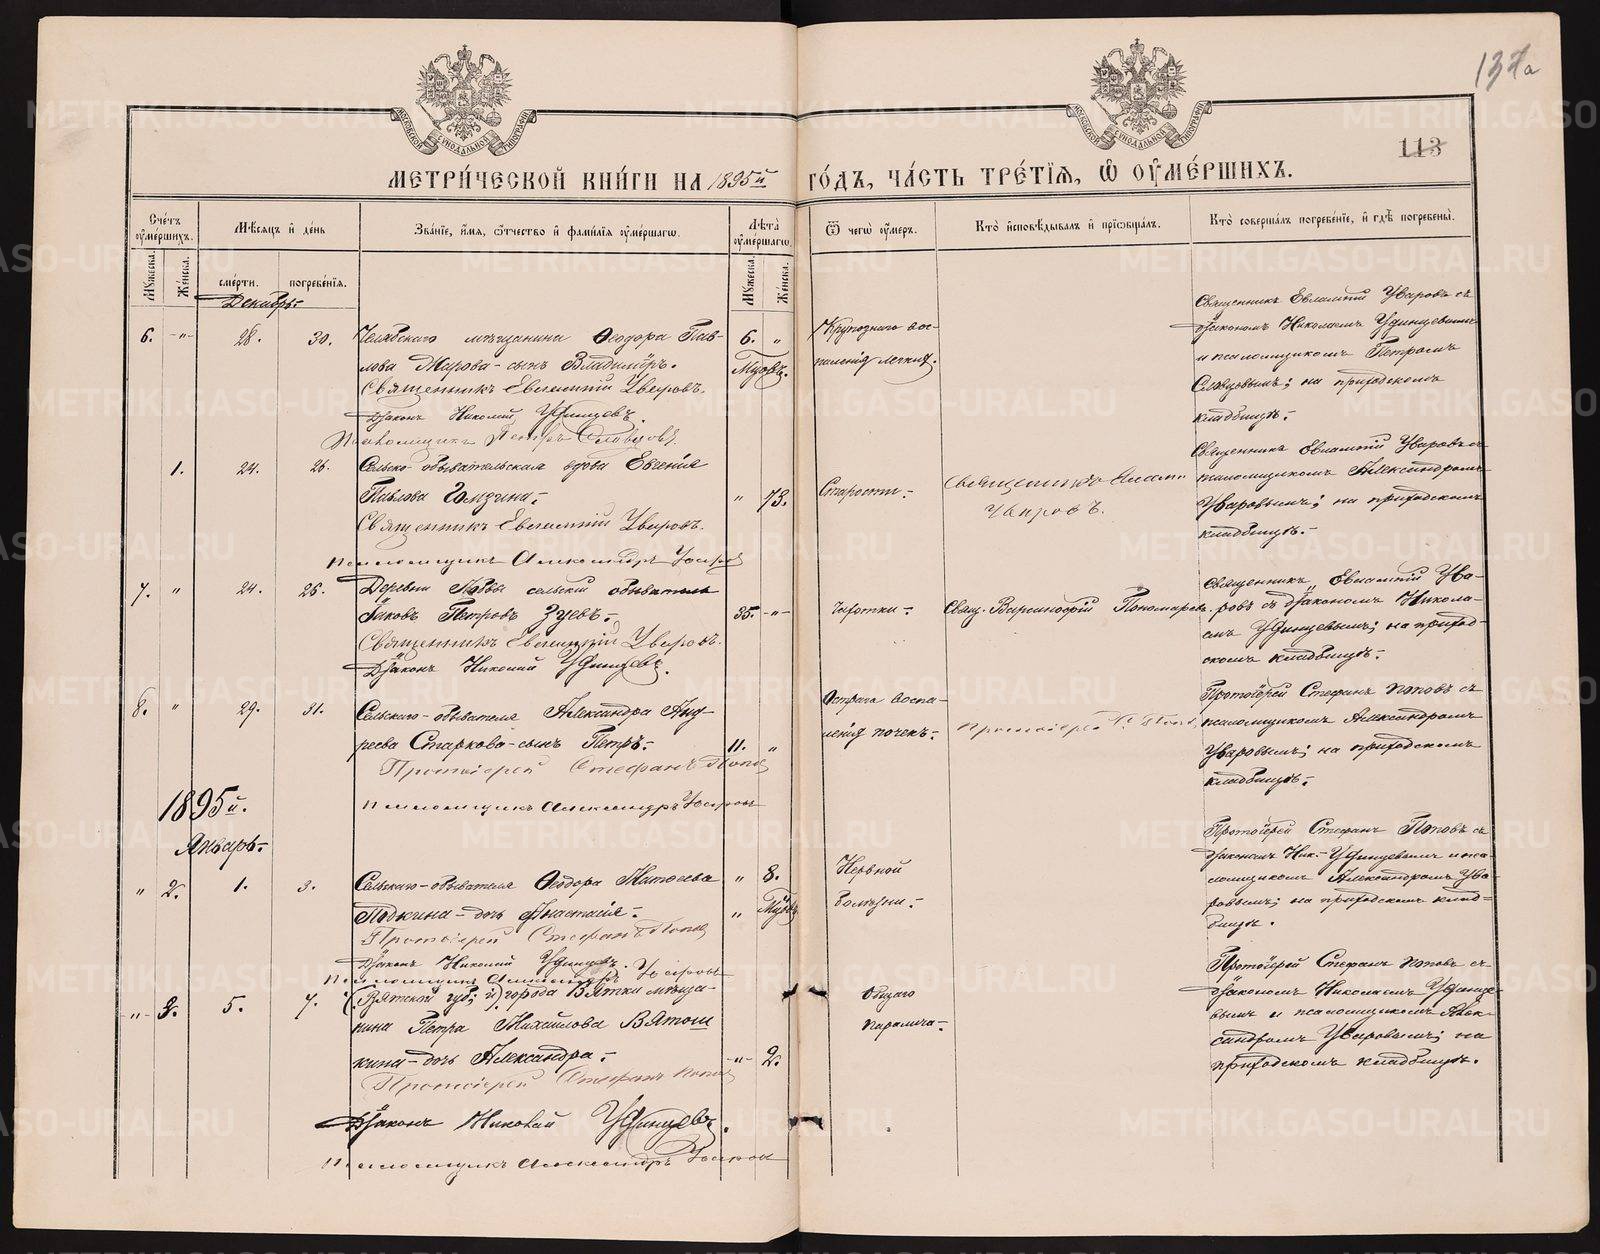 137а
113
МОСКОВСКОЙ СУНОДАЛЬНОЙ ТИПОГРАФІИ
МОСКОВСКОЙ СУНОДАЛЬНОЙ ТИПОГРАФІИ
МЕТРИ́ЧЕСКОЙ КНИ́ГИ НА 1895й ГО́ДЪ, ЧА́СТЬ ТРЕ́ТІЯ, Ѡ ОУМЕ́РШИХЪ.
Сче́тъ оуме́ршихъ.
Мѣ́сяцъ и день
Зва́ніе, и́мя, ѻ́тчество и фами́лія оуме́ршагѡ.
Лѣ́та оуме́ршагѡ.
Ѿ чегѡ̀ оу́меръ.
Кто̀ исповѣ́дывалъ и пріѡбща́лъ.
Кто̀ соверша́лъ погребе́ніе, и гдѣ̀ погребены̀.
Му́жеска.
Же́нска.
сме́рти.
погребе́нія.
Му́жеска.
Же́нска.
Декабрь.
6. -"- 28. 30.
Челябскаго мѣщанина Ѳеодора Пав-
лова Марова - сынъ Владиміръ.
Священникъ Евлампій Уваровъ.
Діаконъ Николай Удинцевъ.
Псаломщикъ Петръ Словцовъ.
6. "
Крупознаго вос-
паленія легкихъ.
Священникъ Евлампій Уваровъ съ
діакономъ Николаемъ Удинцевымъ
и псаломщикомъ Петромъ
Словцовымъ; на приходскомъ
кладбищѣ.
1. 24. 26.
Сельско-обывательская вдова Евгенія
Павлова Гомзина.
Священникъ Евлампій Уваровъ.
Псаломщикъ Александръ Уваровъ
" 73.
Старости.
Священникъ Евламп.
Уваровъ.
Священникъ Евлампій Уваровъ съ
псаломщикомъ Александромъ
Уваровымъ; на приходскомъ
кладбищѣ.
7. " 24. 26.
Деревни сельскій обыватель
Іаковъ Петровъ Зуевъ.
Священникъ Евлампій Уваровъ.
Діаконъ Николай Удинцевъ.
35. -"-
Чахотки.
Свящ. Варсонофій Пономаревъ.
Священникъ Евлампій Ува-
ровъ съ діакономъ Никола-
емъ Удинцевымъ; на приход-
скомъ кладбищѣ.
8. " 29. 31.
Сельскаго-обывателя Александра Анд-
реева Старкова - сынъ Петръ.
Протоіерей Стефанъ Поповъ
Псаломщикъ Александръ Уваровъ
11. "
Остраго воспа-
ленія почекъ.
Протоіерей С. Поповъ
Протоіерей Стефанъ Поповъ съ
псаломщикомъ Александромъ
Уваровымъ; на приходскомъ
кладбищѣ.
1895й.
Январь.
" 2. 1. 3.
Сельскаго-обывателя Ѳеодора Матѳеева
дочь Анастасія.
Протоіерей Стефанъ Поповъ
Діаконъ Николай Удинцевъ.
Псаломщикъ Александръ Уваровъ
" 8.
Нервной
болѣзни.
Протоіерей Стефанъ Поповъ съ
діакономъ Ник. Удинцевымъ и пса-
ломщикомъ Александромъ Ува-
ровымъ; на приходскомъ клад-
бищѣ.
-"- 3. 5. 7.
(Вятской губ. и) города Вятки мѣща-
нина Петра Михайлова Вятош
кина - дочь Александра.
Протоіерей Стефанъ Поповъ
Діаконъ Николай Удинцевъ.
Псаломщикъ Александръ Уваровъ
-"- 2.
Общаго
паралича.
Протоіерей Стефанъ Поповъ съ
діакономъ Николаемъ Удинце-
вымъ и псаломщикомъ Алек-
сандромъ Уваровымъ; на
приходскомъ кладбищѣ.
METRIKI.GASO-URAL.RU